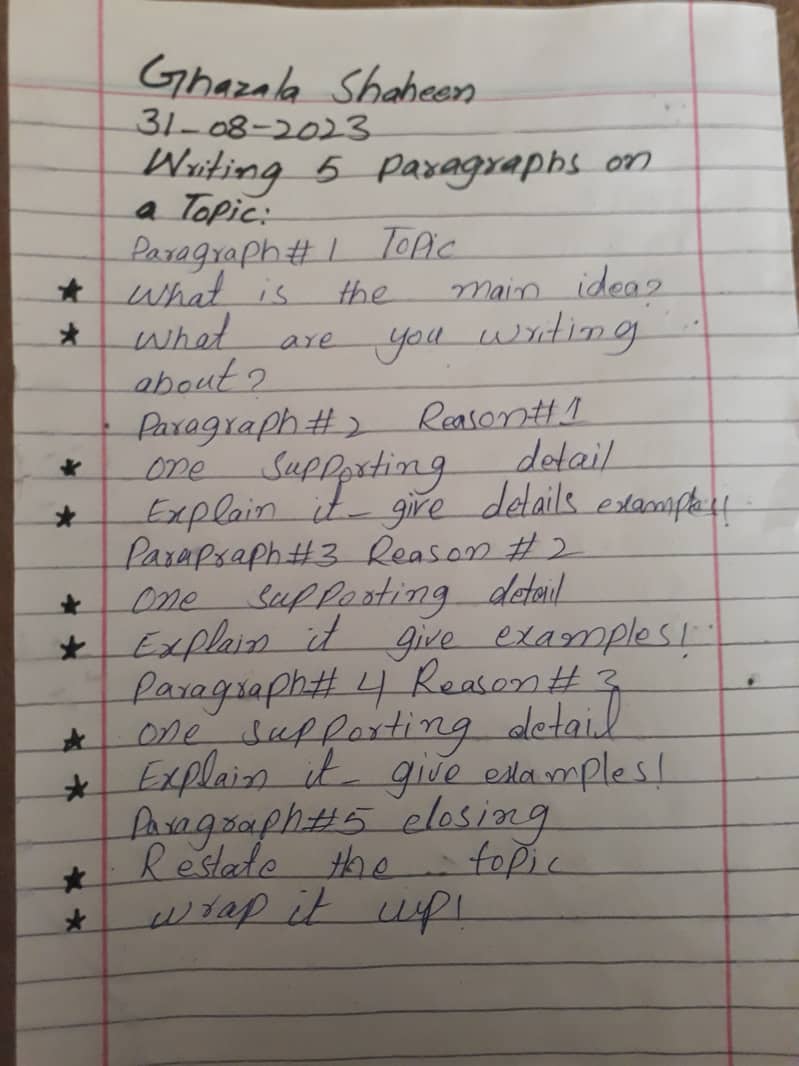 Ghazala Shaheen
31-08-2023
Writing 5 paragraphs on
a Topic:
Paragraph # 1 Topic
★ What is the main idea?
★ What are you writing
about?
Paragraph # 2 Reason # 1
★ one supporting detail
★ Explain it - give details examples!!
Parapraph #3 Reason # 2
★ one supporting detail
★ Explain it give examples!
Paragraph # 4 Reason # 3
★ one supporting detail
★ Explain it - give examples!
Paragraph #5 closing
★ Restate the topic
★ wrap it up!